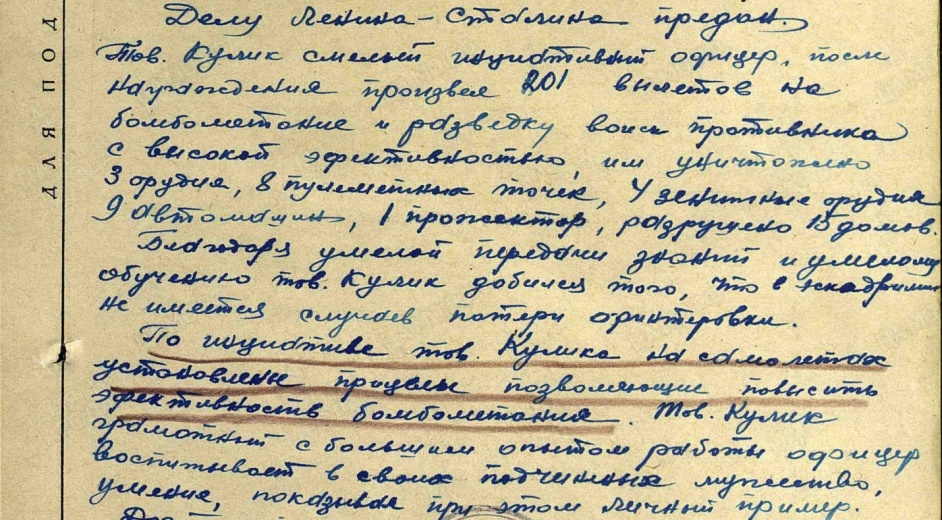 ДЛЯ ПОД
Делу Ленина-Сталина предан.
Тов. Кулик смелый инциативный офицер, после
награждения произвел 201 вылетов на
бомбометание и разведку войск противника
с высокой эфективностью, им уничтожено
3 орудия, 8 пулеметных точек, 4 зенитные орудия
9 автомашин, 1 прожектор, разрушено 15 домов.
Благодоря умелой передачи знаний и умелому
обучению тов. Кулик добился того, что в эскадрилии
не имеется случаев потери ориентеровки.
По инциативе тов. Кулика на самолетах
установлены прицелы позволяющие повысить
эфективность бомбометания. Тов. Кулик
грамотный с большим опытом работы офицер
воспитывает в своих подчинных мужество,
умение, показывая при этом личный пример.